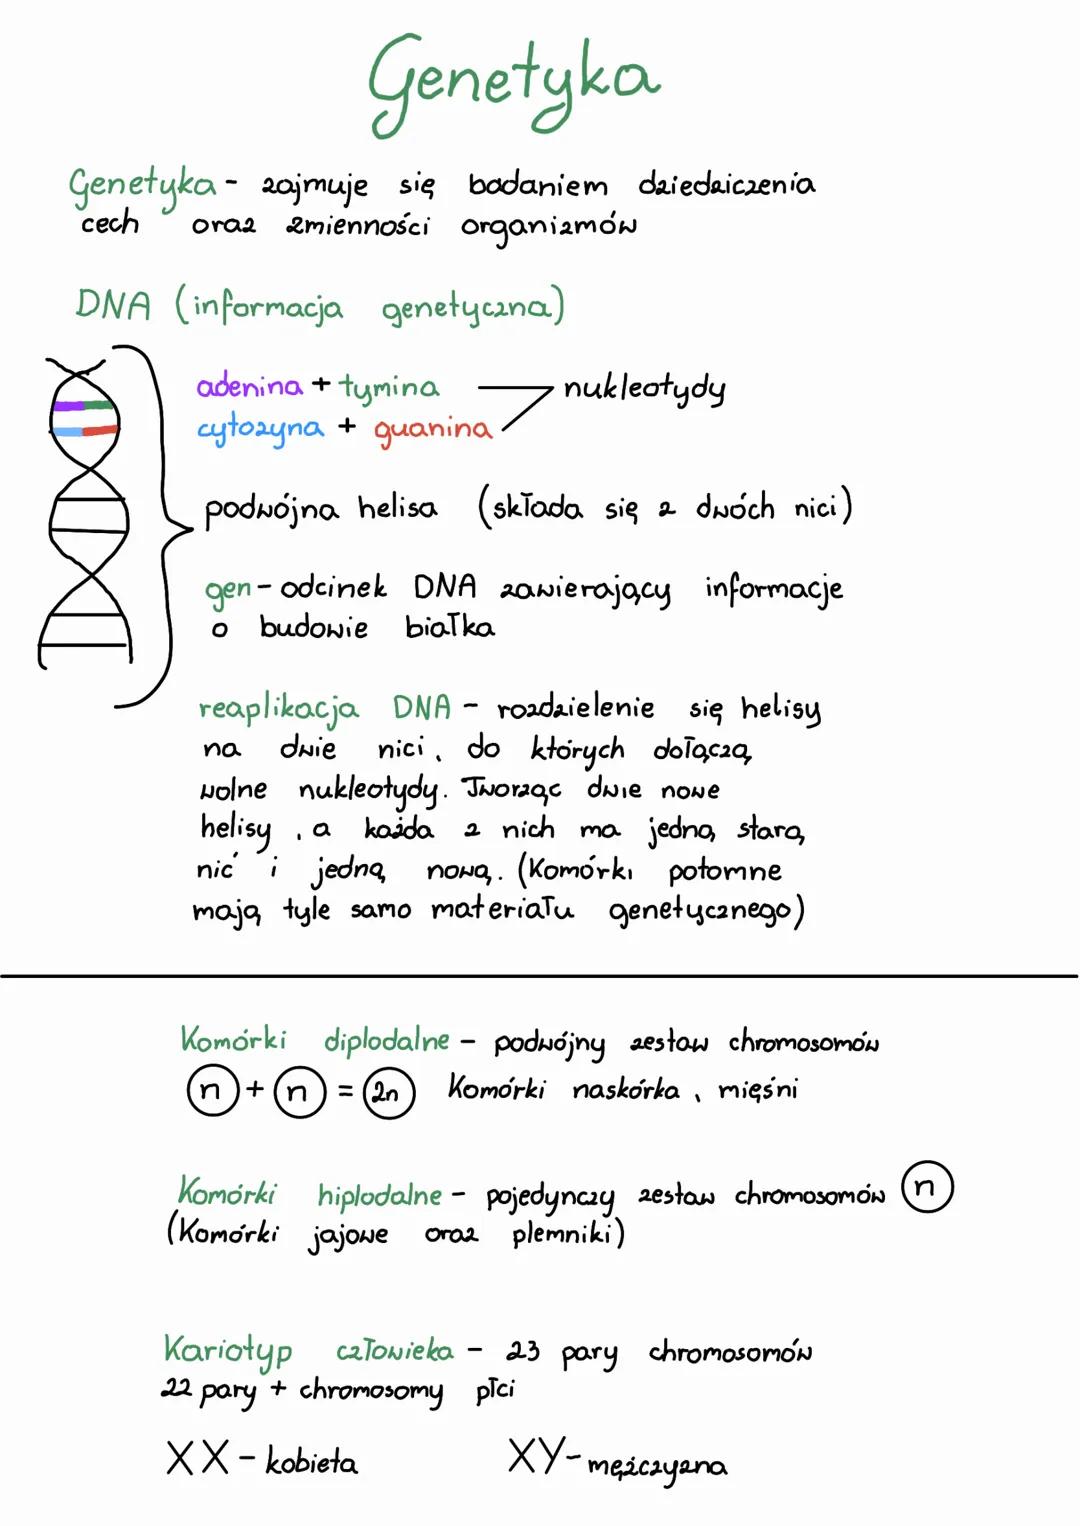 Genetyka
Genetyka - zajmuje się badaniem dziedziczenia
cech oraz zmienności organizmów
DNA (informacja genetyczna)
adenina + tymina nukleotydy
cytozyna + guanina
podwójna helisa (składa się z dwóch nici)
gen - odcinek DNA zawierający informacje
o budowie białka
reaplikacja DNA - rozdzielenie się helisy
na dwie nici, do których dołączą
wolne nukleotydy. Tworząc dwie nowe
helisy, a każda z nich ma jedną starą
nić i jedną nową. (Komórki potomne
mają tyle samo materiału genetycznego)
Komórki diplodalne - podwójny zestaw chromosomów
n + n = 2n Komórki naskórka, mięśni
Komórki hiplodalne - pojedynczy zestaw chromosomów n
(Komórki jajowe oraz plemniki)
Kariotyp człowieka - 23 pary chromosomów
22 pary + chromosomy płci
XX - kobieta XY - mężczyzna